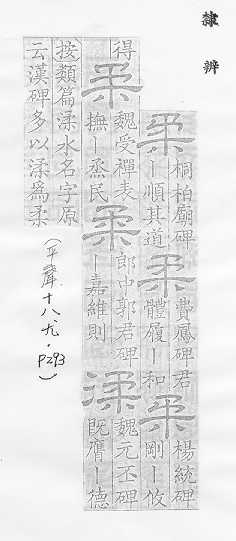 隸辨
柔 桐柏廟碑
丨順其道
柔 費鳳碑君
體履丨和
柔 楊統碑
剛丨攸
得
柔 魏受禪表
撫丨烝民
柔 郎中郭君碑
丨嘉維則
渘 魏元丕碑
既膺丨德
按類篇渘水名字原
云漢碑多以渘爲柔
(平聲十八尤·P293)